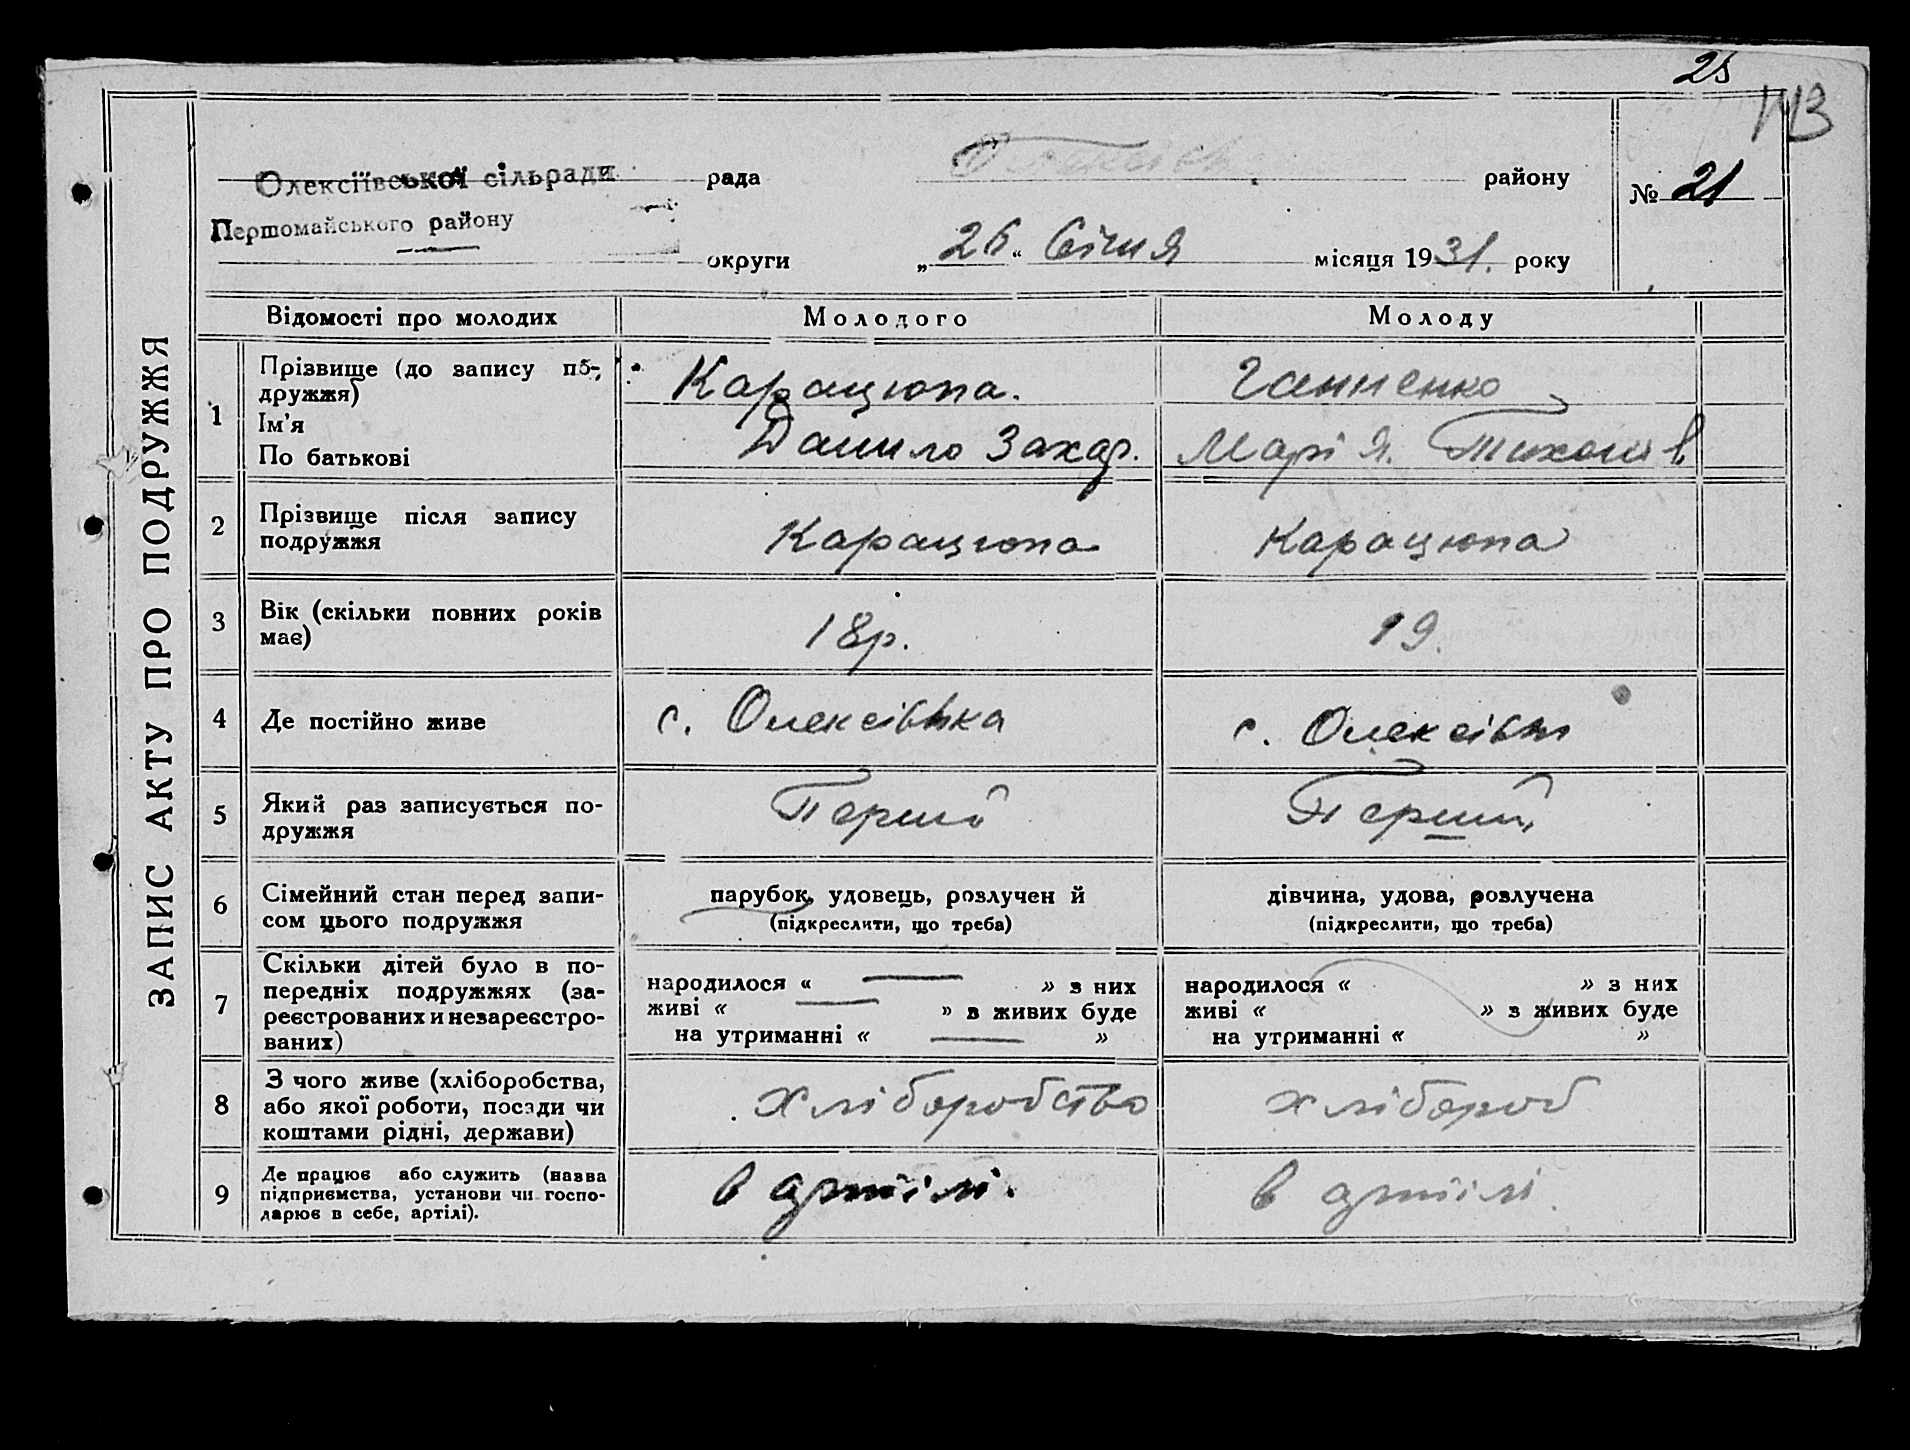 25
113
Олексіївської сільради рада району
№ 21
Першомайського району
округи „ 26 “ Січня місяця 1931. року
ЗАПИС АКТУ ПРО ПОДРУЖЖЯ
Відомості про молодих Молодого Молоду
1 Прізвище (до запису по-
дружжя) Карацюпа. Ганненко
Ім'я
По батькові Данило Захар. Марія. Тихонів
2 Прізвище після запису
подружжя Карацюпа Карацюпа
3 Вік (скільки повних років
має) 18р. 19.
4 Де постійно живе с. Олексіївка с. Олексівк
5 Який раз записується по-
дружжя Перший Перший
6 Сімейний стан перед запи-
сом цього подружжя
парубок, удовець, розлучен й дівчина, удова, розлучена
(підкреслити, що треба) (підкреслити, що треба)
7 Скільки дітей було в по-
передніх подружжях (за-
реєстрованих и незареєстро-
ваних)
народилося « — » з них
живі « — » в живих буде
на утриманні « — »
народилося « » з них
живі « » з живих буде
на утриманні « »
8 З чого живе (хліборобства,
або якої роботи, посади чи
коштами рідні, держави)
хліборобство хлібороб
9 Де працює або служить (назва
підприємства, установи чи госпо-
дарює в себе, артілі).
в артілі. в артілі.